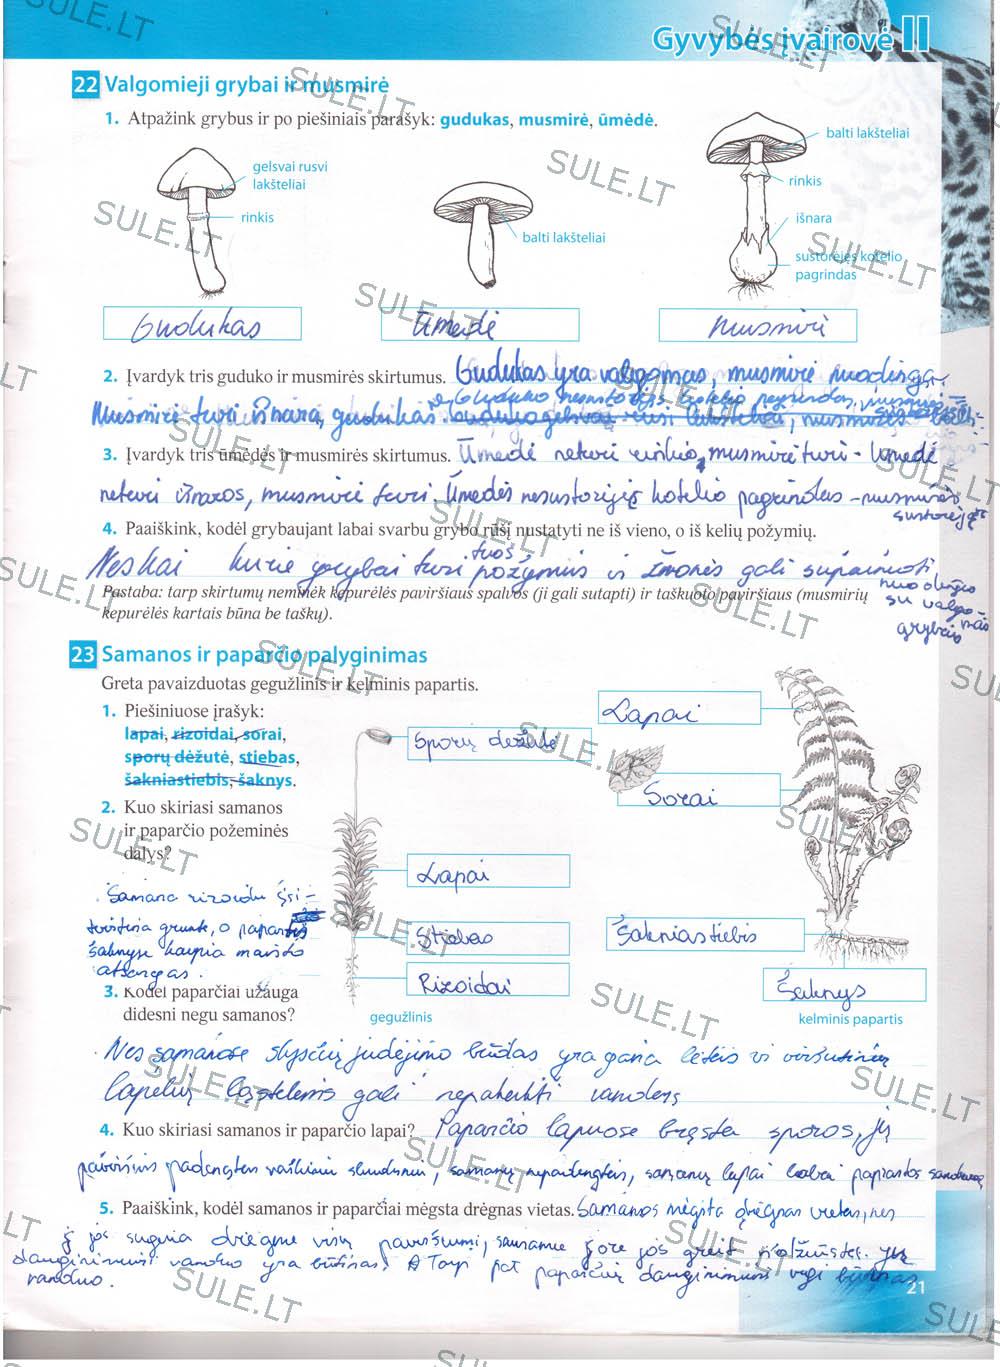 Gyvybės įvairovė II
22 Valgomieji grybai ir musmirė
1. Atpažink grybus ir po piešiniais parašyk: gudukas, musmirė, ūmėdė.
gelsvai rusvi
lakšteliai
rinkis
balti lakšteliai
balti lakšteliai
rinkis
išnara
sustorėjęs kotelio
pagrindas
Gudukas
Ūmėdė
Musmirė
2. Įvardyk tris guduko ir musmirės skirtumus. Gudukas yra valgomas, musmirė nuodinga.
Musmirė turi išnarą, gudukas
3. Įvardyk tris ūmėdės ir musmirės skirtumus. Ūmėdė neturi rinkio, musmirė turi. Ūmėdė
neturi išnaros, musmirė turi. Ūmėdės nesustorėjęs kotelio pagrindas - musmirės
sustorėjęs
4. Paaiškink, kodėl grybaujant labai svarbu grybo rūšį nustatyti ne iš vieno, o iš kelių požymių.
Nes kai kurie grybai turi tuos požymius ir žmonės gali supainioti
nuodingus
su valgo-
mais
grybais
Pastaba: tarp skirtumų neminėk kepurėlės paviršiaus spalvos (ji gali sutapti) ir taškuoto paviršiaus (musmirių
kepurėlės kartais būna be taškų).
23 Samanos ir paparčio palyginimas
Greta pavaizduotas gegužlinis ir kelminis papartis.
1. Piešiniuose įrašyk:
lapai, rizoidai, sorai,
sporų dėžutė, stiebas,
šakniastiebis, šaknys.
Lapai
Sporų dėžutė
Sorai
2. Kuo skiriasi samanos
ir paparčio požeminės
dalys?
Lapai
Samana rizoidu įsi-
tvirtina grunte, o papartis
šaknyse kaupia maisto
atsargas.
Stiebas
Šakniastiebis
Rizoidai
Šaknys
3. Kodėl paparčiai užauga
didesni negu samanos?
gegužlinis
kelminis papartis
Nes samanose skysčių judėjimo būdas yra gana lėtas ir viršutinių
lapelių ląstelėms gali nepakakti vandens
4. Kuo skiriasi samanos ir paparčio lapai? Paparčio lapuose bręsta sporos, jų
paviršius padengtas vaškiniu sluoksniu, samanų nepadengtas, samanų lapai labai paprastos sandaros
5. Paaiškink, kodėl samanos ir paparčiai mėgsta drėgnas vietas. Samanos mėgsta drėgnas vietas, nes
jos sugeria drėgmę visu paviršiumi, sausame ore jos greit išdžiūsta. Jų
dauginimuisi vanduo yra būtinas. Taip pat paparčių dauginimuisi irgi būtinas
vanduo.
21
SULE.LT